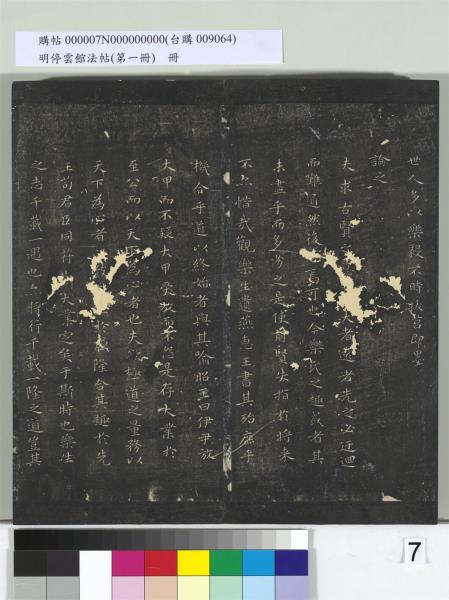 購帖 000007N000000000(台購 009064)
明停雲館法帖(第一冊) 冊
世人多以樂毅不時拔莒即墨
論之
夫求古賢之大者遠者先之必迂迴
而難通然後焉可也今樂氏之趣或者其
未盡乎而多劣之是使前賢失指於將來
不亦惜哉觀樂生遺燕惠王書其殆庶乎
機合乎道以終始者與其喻昭王曰伊尹放
大甲而不疑大甲受放而不怨是存大業於
至公而以天下為心者也夫極道之量務以
天下為心者於盛隆合其趣於先
王苟君臣同符大業定矣于斯時也樂生
之志千載一遇也亦將行千載一隆之道豈其
7